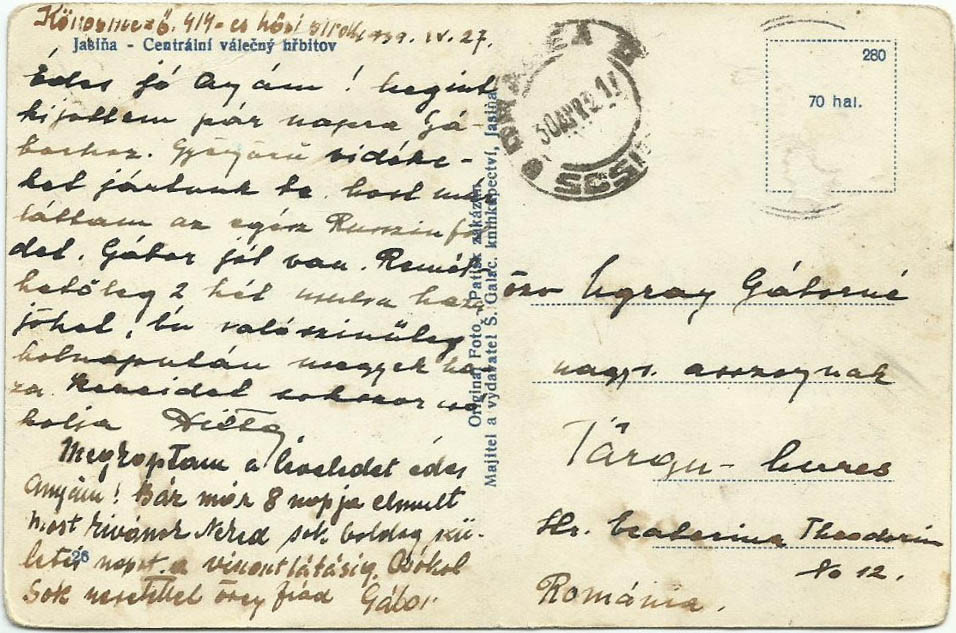 Kőrösmező. 414-es hősi sírok, 939. IV. 27.
Jasiňa - Centrální válečný hřbitov
Édes jó Anyám! Megint
kijöttem pár napra Gá-
borhoz. Gyönyörű vidéke-
ket jártunk be. Most már
láttam az egész Ruszinföl
det. Gábor jól van. Remél
hetőleg 2 hét mulva haza
jöhet, én valószinűleg
holnapután megyek ha
za. Kezeidet sokszor csó
kolja
Megkaptam a leveledet édes
Anyám! Bár már 8 napja elmult
most kivánok Néked sok boldog szü-
letés napot. a viszontlátásig. Csókol
Sok szeretettel öreg fiad Gábor
26
Original Foto - Patisk zakázán
Majitel a vydavatel S. Galac, knihkupectví, Jasiňa
280
70 hal.
özv Ugray Gáborné
nagys. asszonynak
Târgu-Mures
Str. Ecaterina Theodoroiu
No 12.
România.